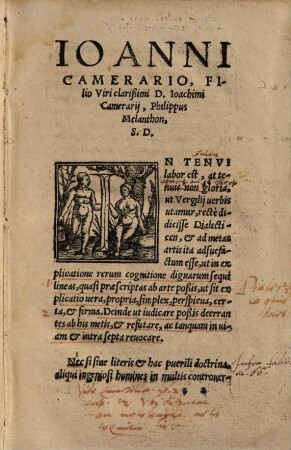 IOANNI
CAMERARIO, FI-
lio Viri clarißimi D. Ioachimi
Camerarij, Philippus
Melanthon,
S. D.
IN TENVI
labor est, at te-
nuis non gloria,
ut Vergilij uerbis
utamur, rectè di-
dicisse Dialecti-
cen, & ad metas
artis ita adsuefa-
ctum esse, ut in ex-
plicatione rerum cognitione dignarum sequi
lineas, quasi præscriptas ab arte poßis, ut sit ex-
plicatio uera, propria, simplex, perspicua, cer-
ta, & firma. Deinde ut iudicare poßis deerran-
tes ab his metis, & refutare, ac tanquam in ui-
am & intra septa reuocare.
Nec si sine literis & hac puerili doctrina,
aliqui ingeniosi homines in multis controuer-